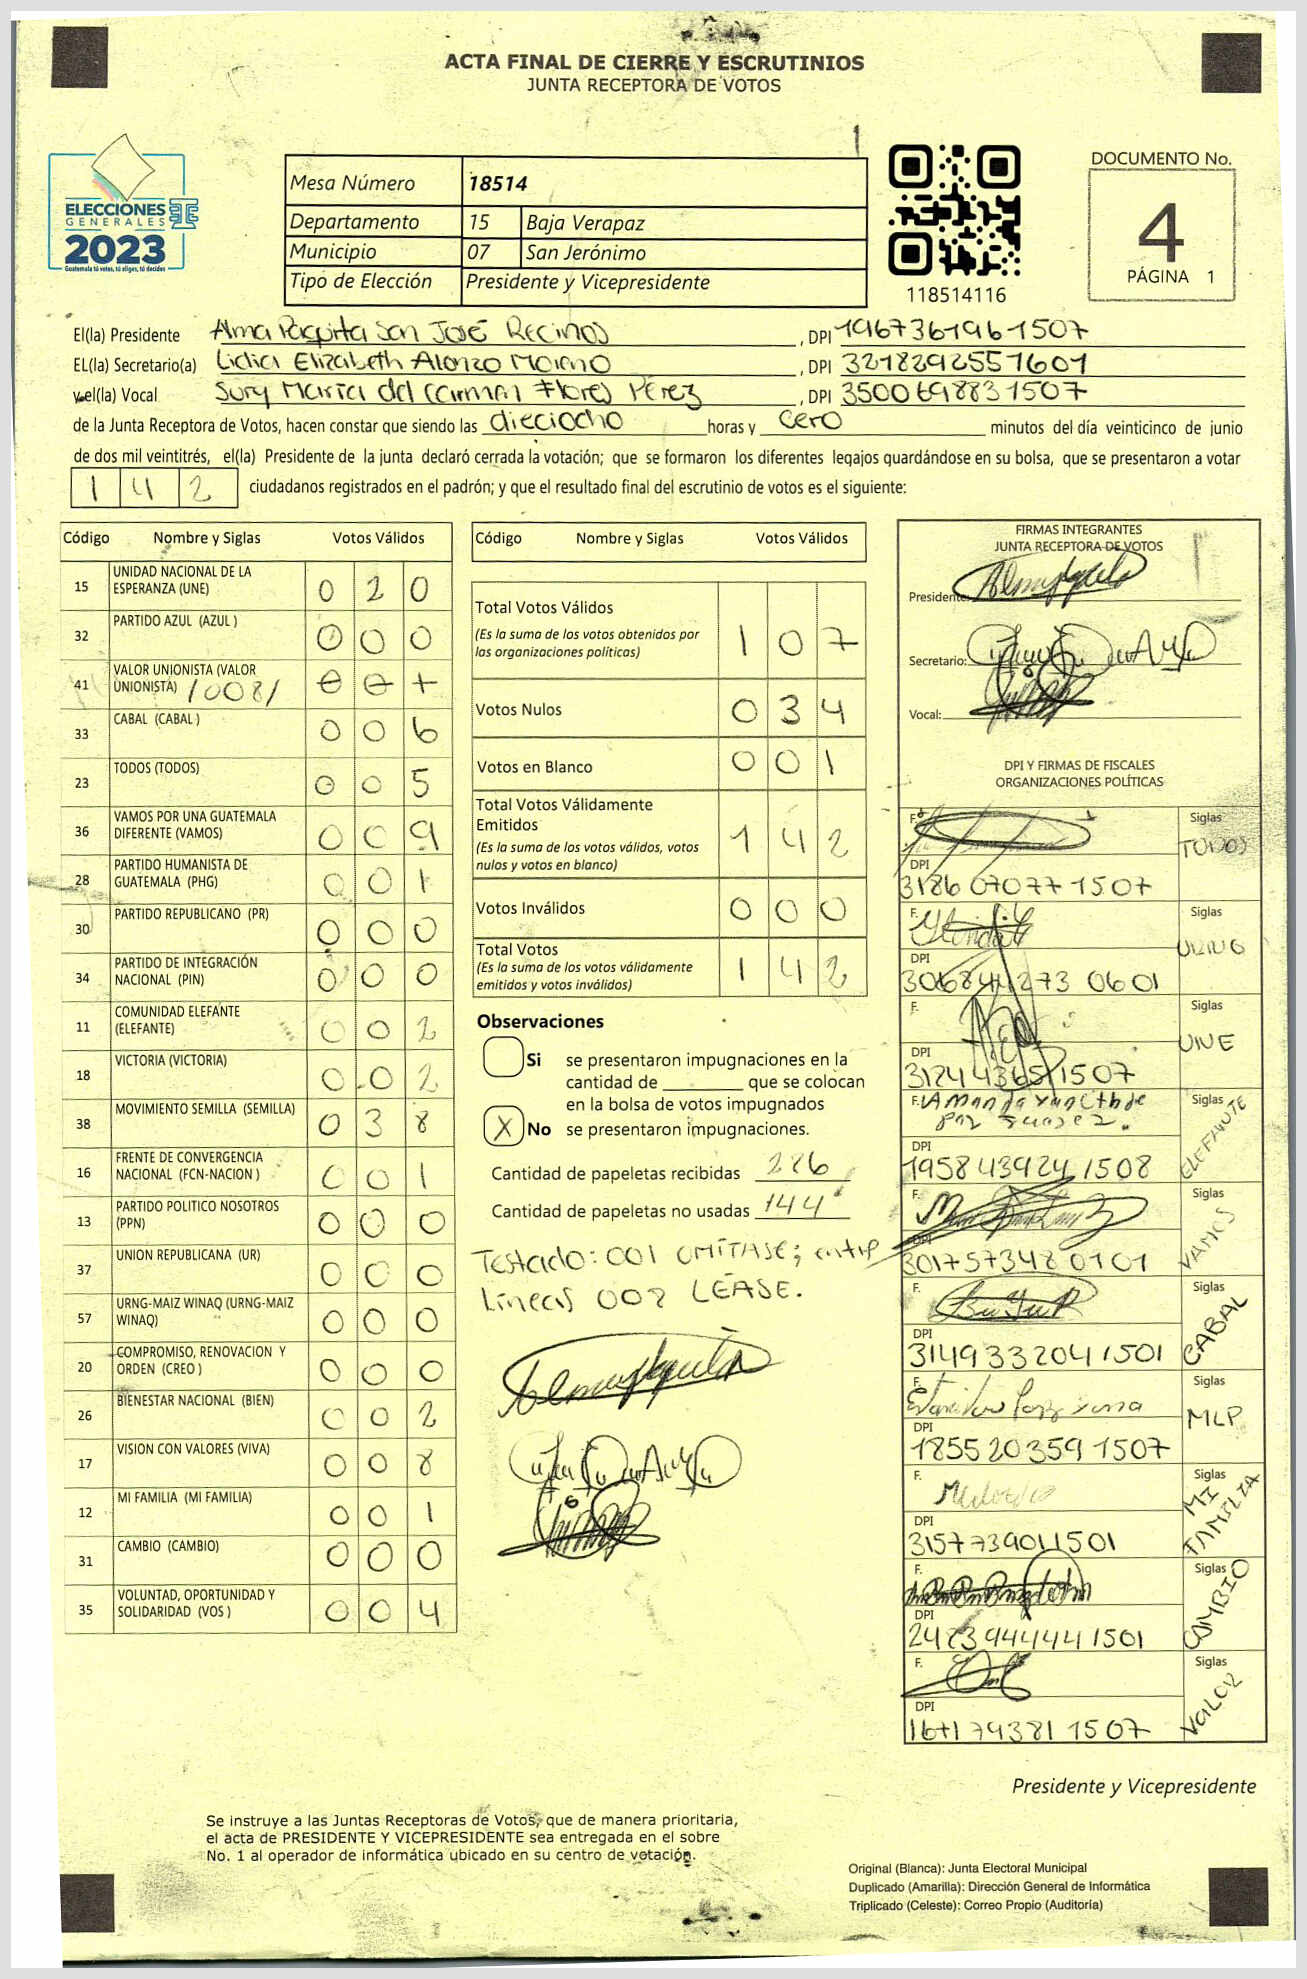 ACTA FINAL DE CIERRE Y ESCRUTINIOS
JUNTA RECEPTORA DE VOTOS
ELECCIONES
GENERALES
2023
Guatemala tú votas, tú eliges, tú decides
Mesa Número 18514
Departamento 15 Baja Verapaz
Municipio 07 San Jerónimo
Tipo de Elección Presidente y Vicepresidente
118514116
DOCUMENTO No.
4
PÁGINA 1
El(la) Presidente Alma Paquita San José Recinos, DPI 1967361961507
EL(la) Secretario(a) Lidia Elizabeth Alonzo Moino, DPI 3218292551601
y el(la) Vocal Sury Maria del Carmen Flores Pérez, DPI 3500698831507
de la Junta Receptora de Votos, hacen constar que siendo las dieciocho horas y cero minutos del día veinticinco de junio
de dos mil veintitrés, el(la) Presidente de la junta declaró cerrada la votación; que se formaron los diferentes legajos guardándose en su bolsa, que se presentaron a votar
142 ciudadanos registrados en el padrón; y que el resultado final del escrutinio de votos es el siguiente:
Código Nombre y Siglas Votos Válidos
15 UNIDAD NACIONAL DE LA ESPERANZA (UNE) 0 2 0
32 PARTIDO AZUL (AZUL ) 0 0 0
41 VALOR UNIONISTA (VALOR UNIONISTA) /008/ 0 0 1
33 CABAL (CABAL ) 0 0 6
23 TODOS (TODOS) 0 0 5
36 VAMOS POR UNA GUATEMALA DIFERENTE (VAMOS) 0 0 9
28 PARTIDO HUMANISTA DE GUATEMALA (PHG) 0 0 1
30 PARTIDO REPUBLICANO (PR) 0 0 0
34 PARTIDO DE INTEGRACIÓN NACIONAL (PIN) 0 0 0
11 COMUNIDAD ELEFANTE (ELEFANTE) 0 0 2
18 VICTORIA (VICTORIA) 0 0 2
38 MOVIMIENTO SEMILLA (SEMILLA) 0 3 8
16 FRENTE DE CONVERGENCIA NACIONAL (FCN-NACION ) 0 0 1
13 PARTIDO POLITICO NOSOTROS (PPN) 0 0 0
37 UNION REPUBLICANA (UR) 0 0 0
57 URNG-MAIZ WINAQ (URNG-MAIZ WINAQ) 0 0 0
20 COMPROMISO, RENOVACION Y ORDEN (CREO ) 0 0 0
26 BIENESTAR NACIONAL (BIEN) 0 0 2
17 VISION CON VALORES (VIVA) 0 0 8
12 MI FAMILIA (MI FAMILIA) 0 0 1
31 CAMBIO (CAMBIO) 0 0 0
35 VOLUNTAD, OPORTUNIDAD Y SOLIDARIDAD (VOS ) 0 0 4
Código Nombre y Siglas Votos Válidos
Total Votos Válidos 1 0 7
(Es la suma de los votos obtenidos por
las organizaciones políticas)
Votos Nulos 0 3 4
Votos en Blanco 0 0 1
Total Votos Válidamente
Emitidos 1 4 2
(Es la suma de los votos válidos, votos
nulos y votos en blanco)
Votos Inválidos 0 0 0
Total Votos 1 4 2
(Es la suma de los votos válidamente
emitidos y votos inválidos)
Observaciones
Si se presentaron impugnaciones en la
cantidad de ________ que se colocan
en la bolsa de votos impugnados
X No se presentaron impugnaciones.
Cantidad de papeletas recibidas 286
Cantidad de papeletas no usadas 144
Testado: 001 OMÍTASE; entre
líneas 008 LÉASE.
FIRMAS INTEGRANTES
JUNTA RECEPTORA DE VOTOS
Presidente:
Secretario:
Vocal:
DPI Y FIRMAS DE FISCALES
ORGANIZACIONES POLÍTICAS
F. Siglas TODOS
DPI
3186070771507
F. Siglas
DPI
3068442730601
F. Siglas UNE
DPI
3124436511507
F. Amanda Siglas ELEFANTE
DPI
1958439241508
F. Siglas VAMOS
DPI
3017573480101
F. Siglas CABAL
DPI
3149332041501
F. Siglas MLP
DPI
1855203591507
F. Siglas MI FAMILIA
DPI
3157739011501
F. Siglas COMBIO
DPI
2423944441501
F. Siglas VALOR
DPI
1671793811507
Presidente y Vicepresidente
Se instruye a las Juntas Receptoras de Votos, que de manera prioritaria,
el acta de PRESIDENTE Y VICEPRESIDENTE sea entregada en el sobre
No. 1 al operador de informática ubicado en su centro de votación.
Original (Blanca): Junta Electoral Municipal
Duplicado (Amarilla): Dirección General de Informática
Triplicado (Celeste): Correo Propio (Auditoría)